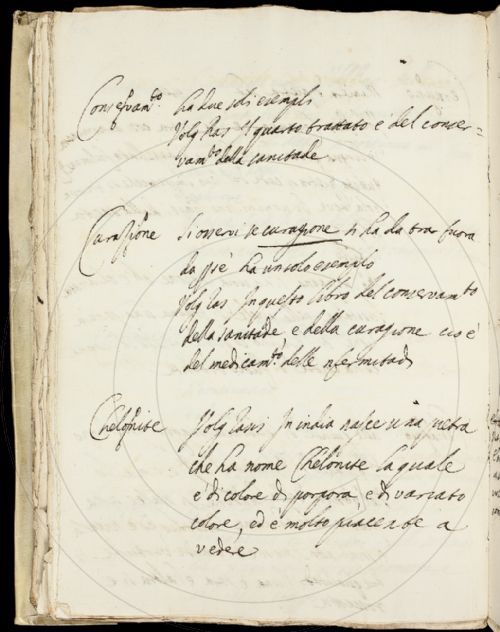 Conservam.to ha due soli esempli
Volg Ras Il quarto trattato è del conser=
vam.to della sanitade
Curazione Si osservi se curagione si ha da trar fuora
da sè ha un solo esempio
Volg Ras In questo libro del conservam.to
della sanitade e della curagione cio è
del medicam.to delle nfermitadi
Chelonite Volg Rasis In india nasce una pietra
che ha nome Chelonite la quale
è di colore di porpora, e di variato
colore, ed è molto piacente a
vedere